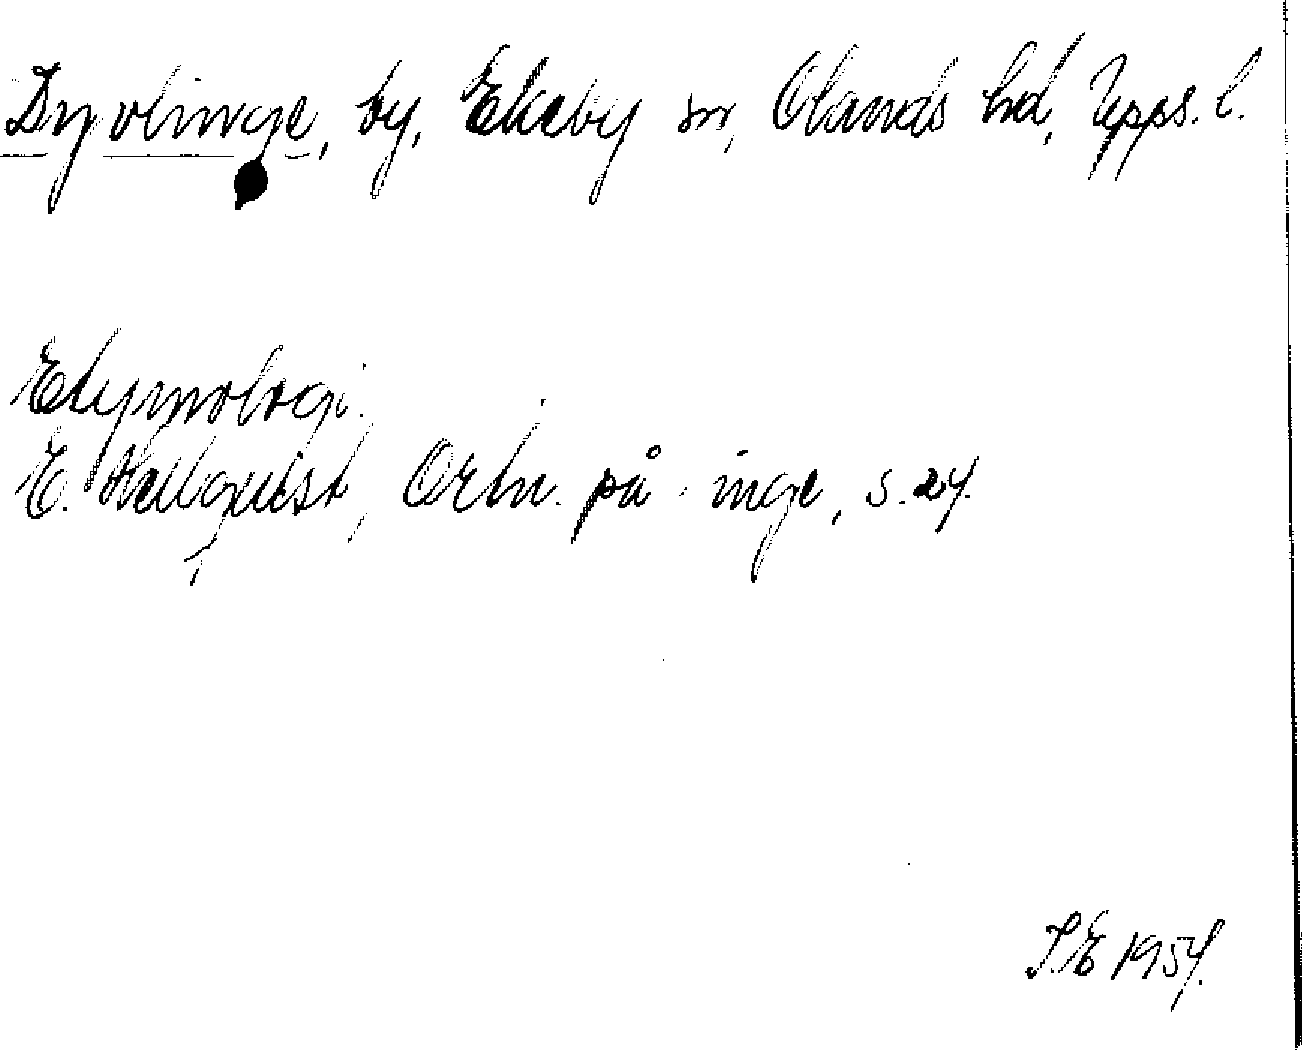 Dyvlinge, by, Ekeby sn, Olands hd, Upps. l.
Etymologi.
E. Hellquist, Ortn. på -inge, s. 24.
S.E 1954.